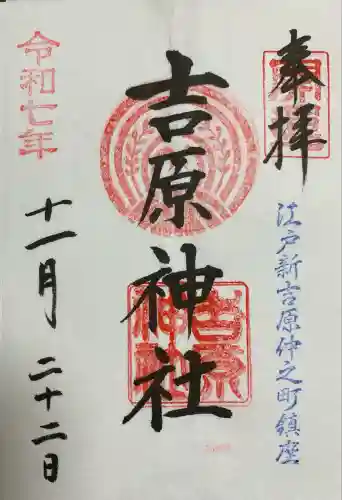 奉拝
江戸新吉原仲之町鎮座
吉原神社
吉原神社
令和七年
十一月二十二日